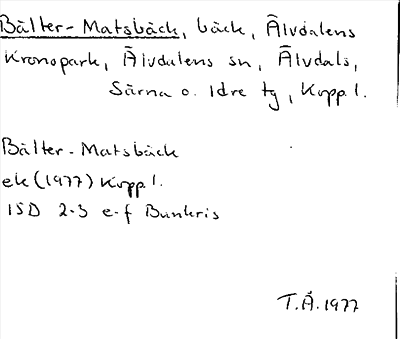 Bälter-Matsbäck, bäck, Älvdalens
Kronopark, Älvdalens sn, Älvdals,
Särna o. Idre tg, Kopp.l.
Bälter-Matsbäck
ek (1977) Kopp.l.
15D 2-3 e-f Bunkris
T.Å. 1977